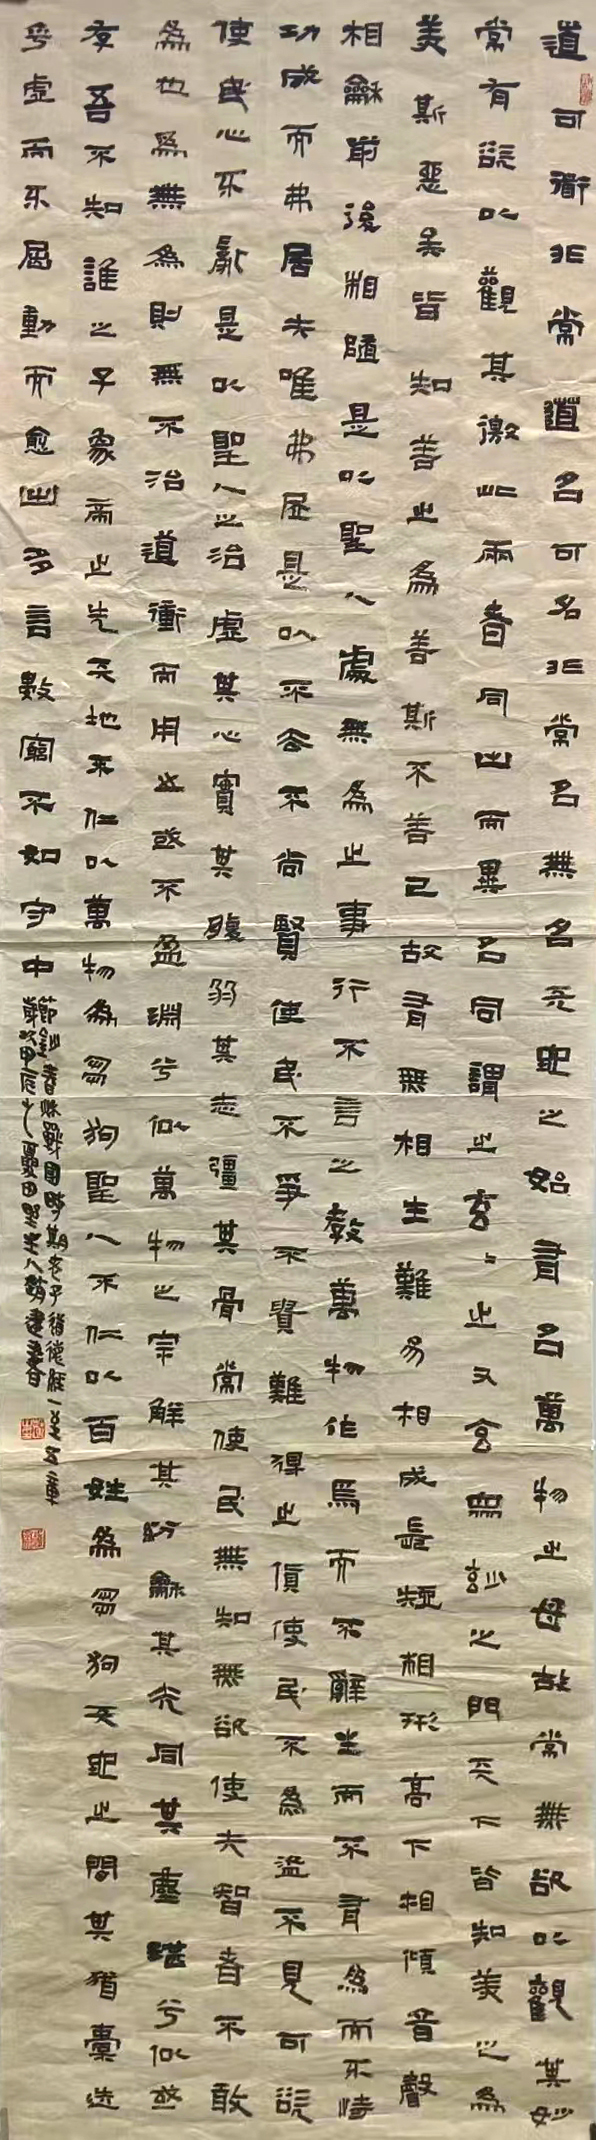 道可道非常道名可名非常名無名天地之始有名萬物之母故常無欲以觀其妙
常有欲以觀其徼此兩者同出而異名同謂之玄玄之又玄眾妙之門天下皆知美之為
美斯惡矣皆知善之為善斯不善已故有無相生難易相成長短相形高下相傾音聲
相龢前後相隨是以聖人處無為之事行不言之教萬物作焉而不辭生而不有為而不恃
功成而弗居夫唯弗居是以不去不尚賢使民不爭不貴難得之貨使民不為盜不見可欲
使民心不亂是以聖人之治虛其心實其腹弱其志彊其骨常使民無知無欲使夫智者不敢
為也為無為則無不治道沖而用之或不盈淵兮似萬物之宗解其紛龢其光同其塵湛兮似或
存吾不知誰之子象帝之先天地不仁以萬物為芻狗聖人不仁以百姓為芻狗天地之間其猶橐迭
乎虛而不屈動而愈出多言數窮不如守中
節鈔春秋戰國時期老子道德經一至五章
歲次甲辰之夏田野老人趙建春